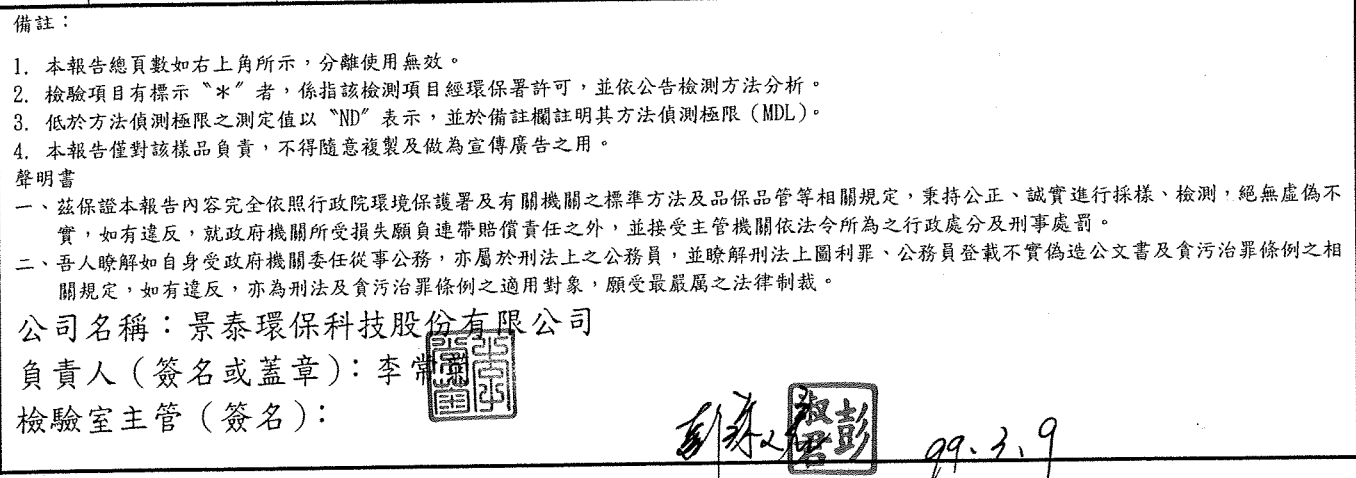 備註：
1. 本報告總頁數如右上角所示，分離使用無效。
2. 檢驗項目有標示〝*〞者，係指該檢測項目經環保署許可，並依公告檢測方法分析。
3. 低於方法偵測極限之測定值以〝ND〞表示，並於備註欄註明其方法偵測極限（MDL）。
4. 本報告僅對該樣品負責，不得隨意複製及做為宣傳廣告之用。
聲明書
一、茲保證本報告內容完全依照行政院環境保護署及有關機關之標準方法及品保品管等相關規定，秉持公正、誠實進行採樣、檢測，絕無虛偽不
實，如有違反，就政府機關所受損失願負連帶賠償責任之外，並接受主管機關依法令所為之行政處分及刑事處罰。
二、吾人瞭解如自身受政府機關委任從事公務，亦屬於刑法上之公務員，並瞭解刑法上圖利罪、公務員登載不實偽造公文書及貪污治罪條例之相
關規定，如有違反，亦為刑法及貪污治罪條例之適用對象，願受最嚴厲之法律制裁。
公司名稱：景泰環保科技股份有限公司
負責人（簽名或蓋章）：李常
檢驗室主管（簽名）：
彭淑君
99.3.9